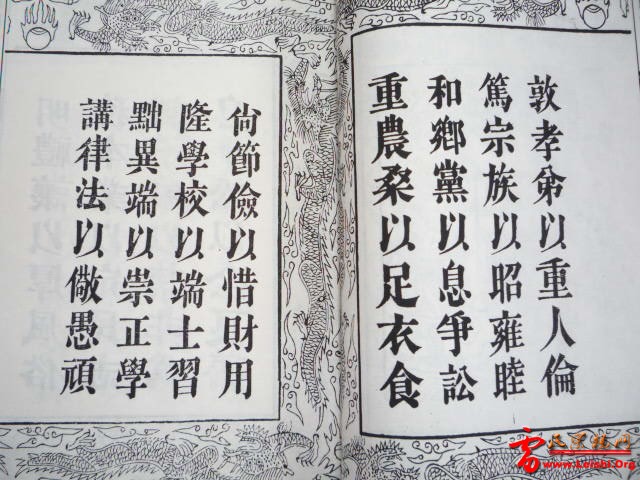 敦孝弟以重人倫
篤宗族以昭雍睦
和鄉黨以息爭訟
重農桒以足衣食
尙節儉以惜財用
隆學校以端士習
黜異端以崇正學
講律法以儆愚頑
www.Leishi.Org